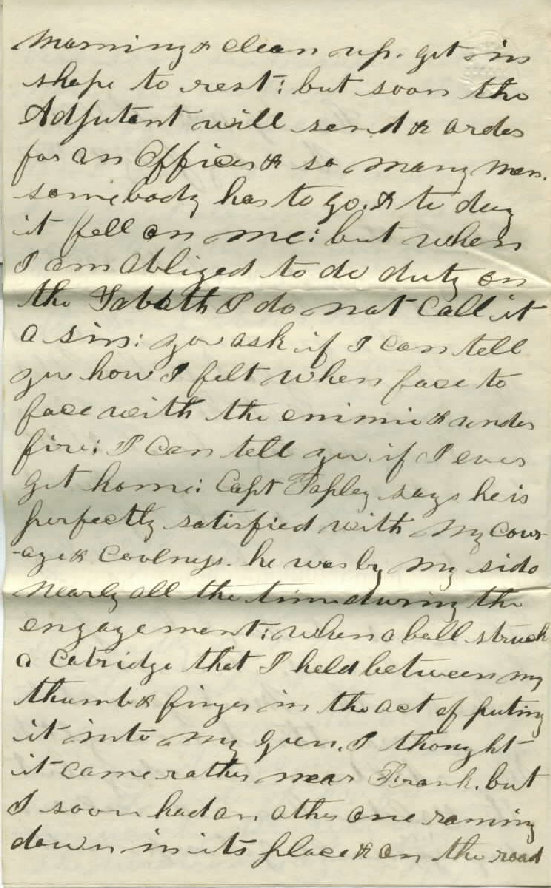 morning & clean up. get in
shape to rest: but soon the
Adjutent will send & order
for an Officer & so many men.
somebody has to go. & to day
it fell on me: but when
I am Abliged to do duty on
the Sabath I do not call it
a sin: you ask if I can tell
you how I felt when face to
face with the enimie & under
fire; I can tell you if I ever
get home: Capt Tapley says he is
perfectly satisfied with my cour-
-age & Coolness. he was by my side
nearly all the time during the
engagement; when a ball struck
a catridge that I held between my
thumb & finger in the act of puting
it into my gun. I thought
it came rather near Frank. but
I soon had an other one raming
down in its place & on the road